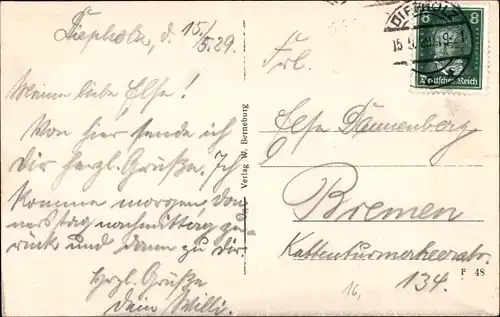 Diepholz, d. 15./5.29.
Meine liebe Else!
Von hier sende ich
Dir herzl. Grüße. Ich
komme morgen, Don-
nerstag nachmittag zu-
rück und dann zu Dir.
Herzl. Grüße
Dein Willi.
Verlag W. Berneburg
DIEPHOLZ
15.5.29
8 8
Deutsches Reich
Frl.
Else Dannenberg
Bremen
Kattenturmerheerstr.
134.
F 48
16,